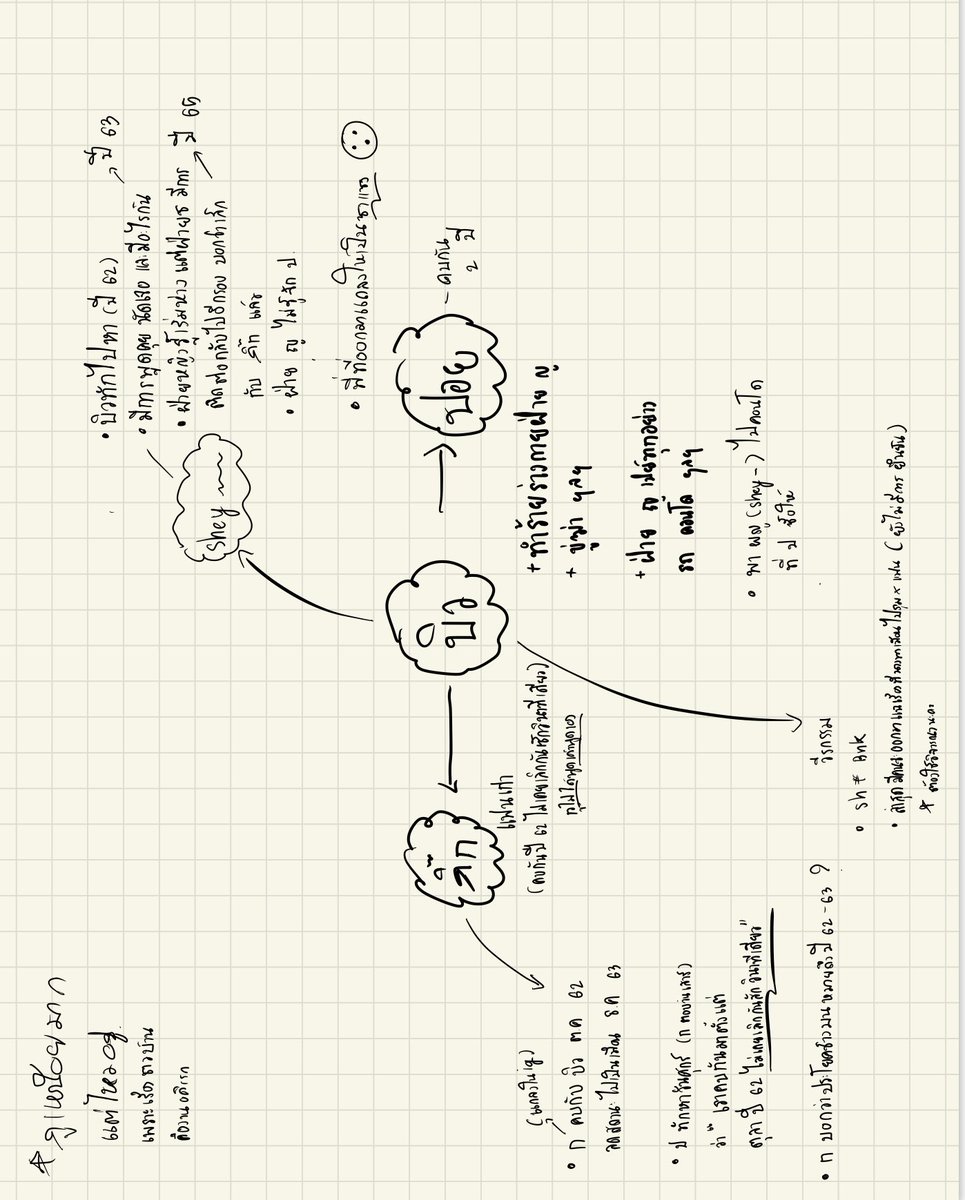 * กูเหนื่อยมาก
แต่ไหวอยู่
เพราะเรื่องชาวบ้าน
คืองานอดิเรก
shey
• บิวทักไปหา (ปี 62)
• มีการพูดคุย นัดเจอ และมีอะไรกัน → ปี 63
• ฝ่ายหญิงรู้เริ่มห่าง แต่ฝ่ายช มีการ
ติดต่อกลับไปอีกรอบ บอกว่าเลิก → ปี 65
กับ กิ๊ก แล้ว
• ฝ่าย ญ ไม่รู้จัก ป
• พี่ที่ออกมาแถลงไทม์เป็นชาแทน
กิ๊ก
บิว
ปอย
- คบกัน
2 ปี
แฟนเก่า
(คบกันปี 62 ไม่เคยเลิกกันซักวินาทีเดียว)
กูไม่ได้พูดเค้าพูดเอง
+ ทำร้ายร่างกายฝ่าย ญ
+ ขู่ฆ่า ฯลฯ
+ ฝ่าย ญ เปย์ทุกอย่าง
รถ คอนโด ฯลฯ
• พา ผญ (shey~) ไปคอนโด
ที่ ป ซื้อให้
(ในกลางใหญ่)
• ก คบกับ บิว ตค 62
ลดสถานะไปเป็นเพื่อน ธค 63
• ป ทักหาวันศุกร์ (ก ตอบวันเสาร์)
ว่า " เราคบกันมาตั้งแต่
ตุลา ปี 62 ไม่เคยเลิกกันสักวินาทีเดียว"
• ก บอกว่าประโยคข้างบนหมายถึงปี 62 - 63 ?
วีรกรรม
• sh* ank
* ต้องใช้วิจารณานะคะ